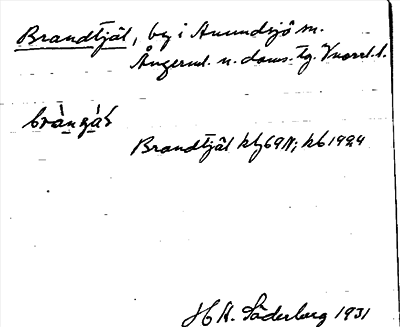 Brandtjäl, by i Anundsjö sn.
Ångerml. n. doms. tg. Vnorrl. l.
bràngás
Brandtjäl kbg69N; kb 1924
H. K. Söderberg 1931